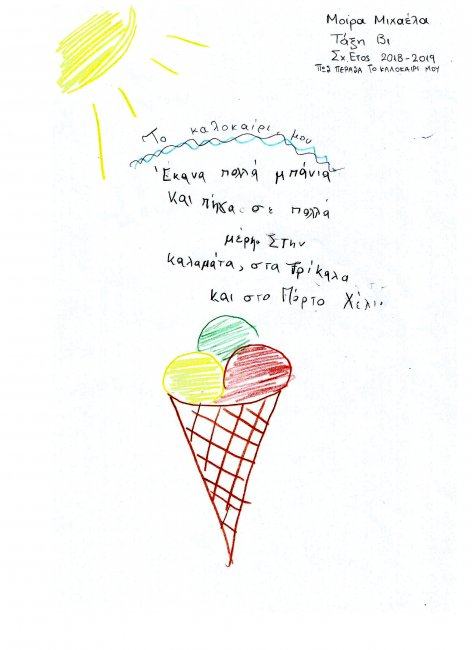 Μοίρα Μιχαέλα
Τάξη Β1
Σχ. Ετος 2018-2019
ΠΩΣ ΠΕΡΑΣΑ ΤΟ ΚΑΛΟΚΑΙΡΙ ΜΟΥ
Το καλοκαίρι μου
Έκανα πολλά μπάνια
και πήγα σε πολλά
μέρη. Στην
καλαμάτα, στα Τρίκαλα
και στο Πόρτο Χέλι